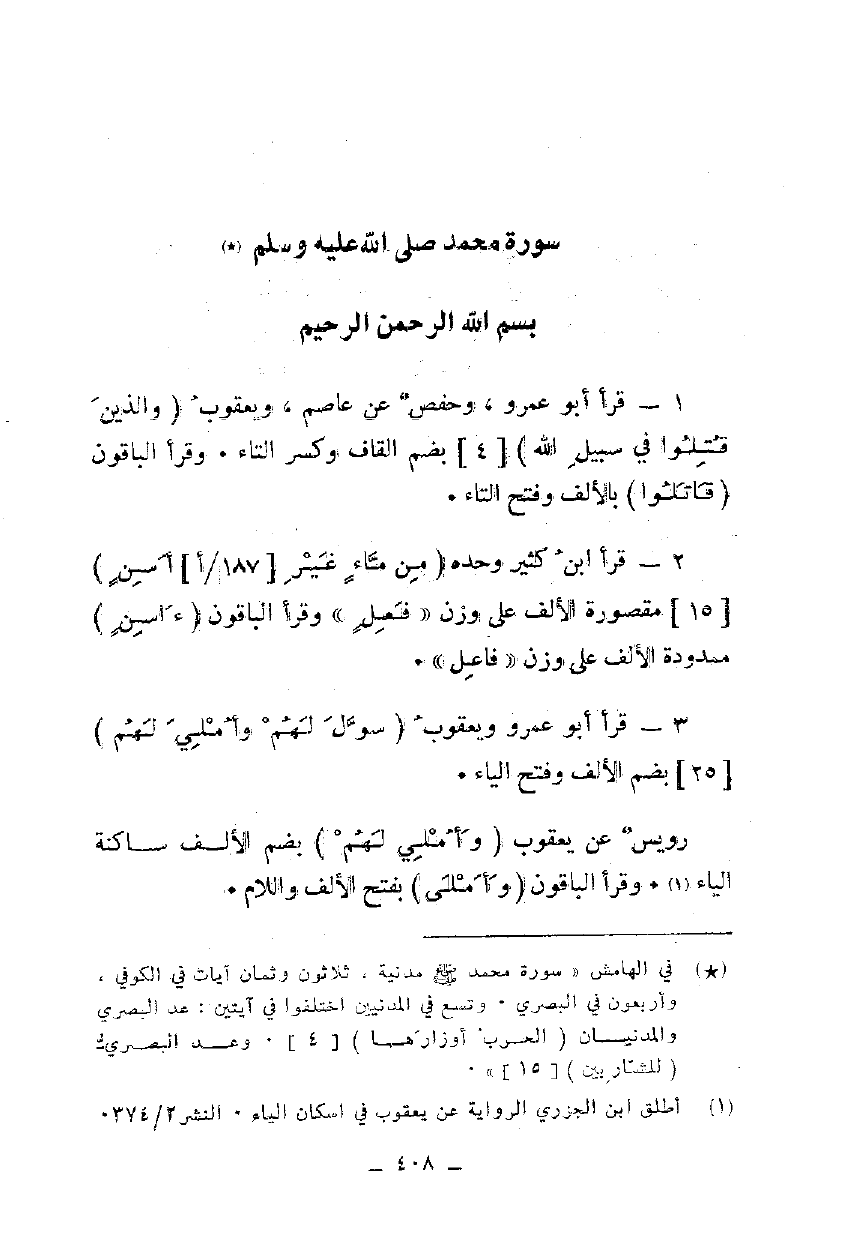 سورة محمد صلى الله عليه وسلم (★)
بسم الله الرحمن الرحيم
١ ـ قرأ أبو عمرو ، وحفصٌ عن عاصم ، ويعقوبُ ( والذينَ
قُتِلُوا في سبيلِ الله ) [ ٤ ] بضم القاف وكسر التاء . وقرأ الباقون
( قَاتَلُوا ) بالألف وفتح التاء .
٢ ـ قرأ ابنُ كثير وحده ( مِن مَّاءٍ غَيْرِ [ ١٨٧/أ ] أَسِنٍ )
[ ١٥ ] مقصورة الألف على وزن « فَعِلٍ » وقرأ الباقون ( ءَاسِنٍ )
ممدودة الألف على وزن « فاعِل » .
٣ ـ قرأ أبو عمرو ويعقوبُ ( سوَّلَ لَهُمْ وأُمْلِيَ لَهُم )
[ ٢٥ ] بضم الألف وفتح الياء .
رويسٌ عن يعقوب ( وَأُمْلِي لَهُمْ ) بضم الألف ساكنة
الياء (١) . وقرأ الباقون ( وَأَمْلَى ) بفتح الألف واللام .
(★) في الهامش « سورة محمد ﷺ مدنية ، ثلاثون وثمان آيات في الكوفي ،
وأربعون في البصري . وتسع في المدنيين اختلفوا في آيتين : عد البصري
والمدنيان ( الحربُ أوزارَها ) [ ٤ ] . وعد البصريُّ
( للشَّارِبين ) [ ١٥ ] » .
(١) أطلق ابن الجزري الرواية عن يعقوب في اسكان الياء . النشر ٣٧٤/٢.
ـ ٤٠٨ ـ